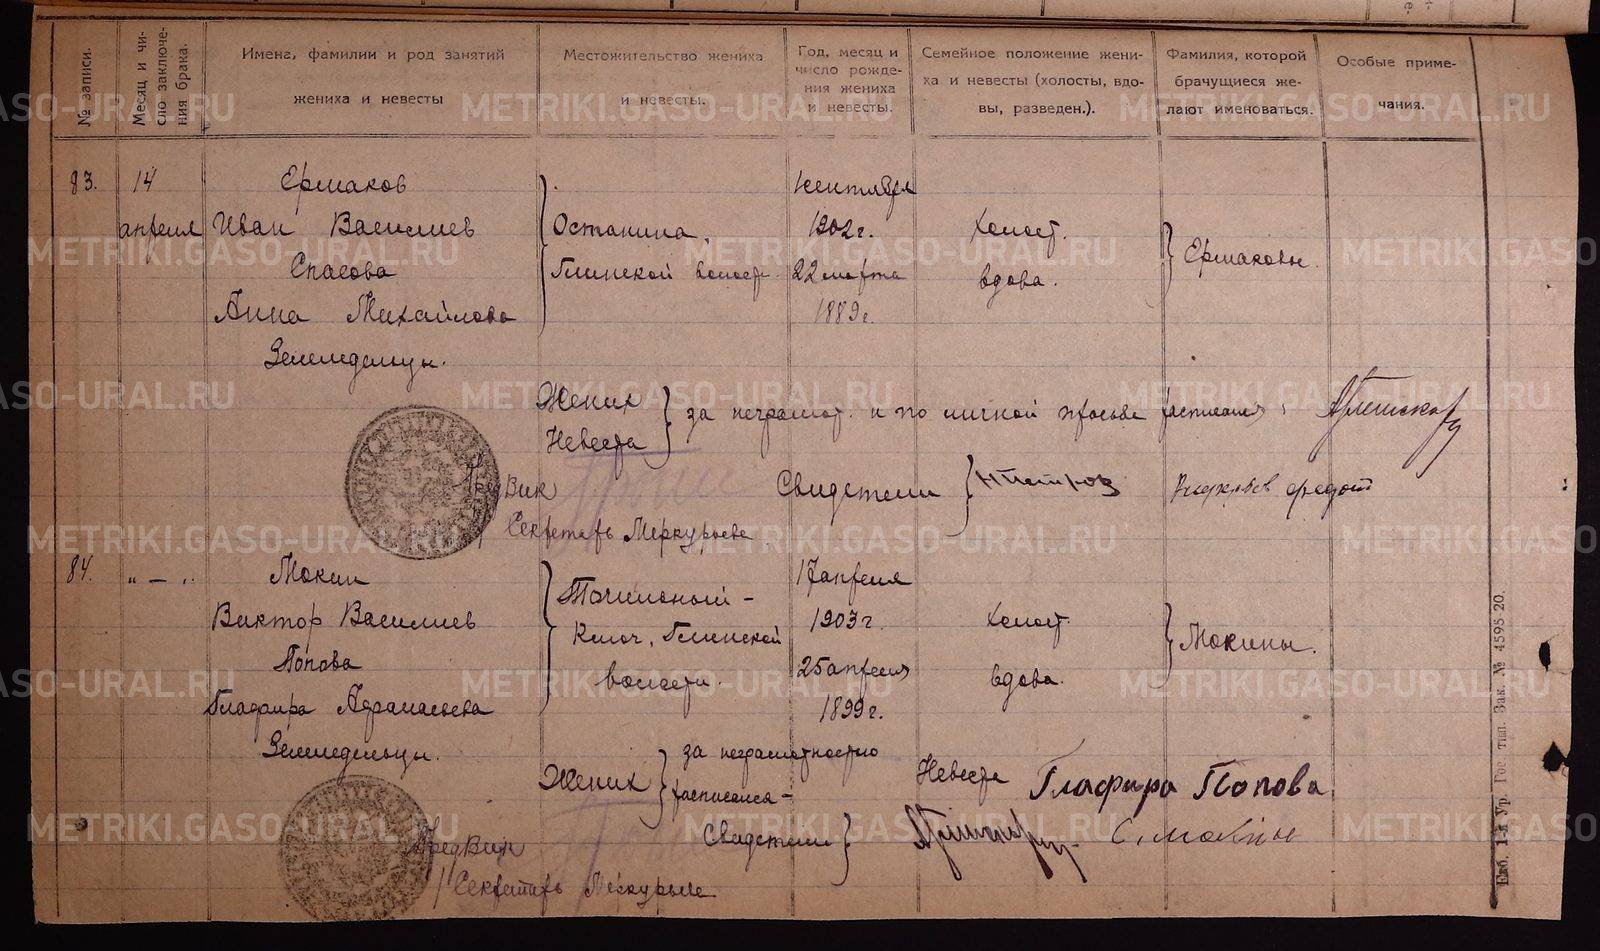 № записи.
Месяц и чи-
сло заключе-
ния брака.
Имена, фамилии и род занятий
жениха и невесты
Местожительство жениха
и невесты.
Год, месяц и
число рожде-
ния жениха
и невесты.
Семейное положение жени-
ха и невесты (холосты, вдо-
вы, разведен.).
Фамилия, которой
брачущиеся же-
лают именоваться.
Особые приме-
чания.
83.
14
апреля
Ермаков
Иван Василиев
Спасова
Анна Михайлова
Земледельцы.
Останина,
Глинской волост.
1 сентября
1902 г.
22 марта
1889 г.
Холост.
вдова.
Ермаковы.
Жених
Невеста
за неграмот. и по личной просьбе расписался
Пред Вик
Секретарь Меркурьева
Свидетели
НПетров
84.
„ — „
Мокин
Виктор Василиев
Попова
Глафира Адрианаевна
Земледельцы.
Ключ, Глинской
волости.
17 апреля
1903 г.
25 апреля
1899 г.
Холост
вдова.
Мокины.
Жених
за неграмотностью
расписался –
Невеста Глафира Попова
Свидетели
С. Мокин
Пред Вик
Секретарь Меркурьева
Екб. 1-я Ур. Гос. тип. Зак. № 4595 20.
METRIKI.GASO-URAL.RU